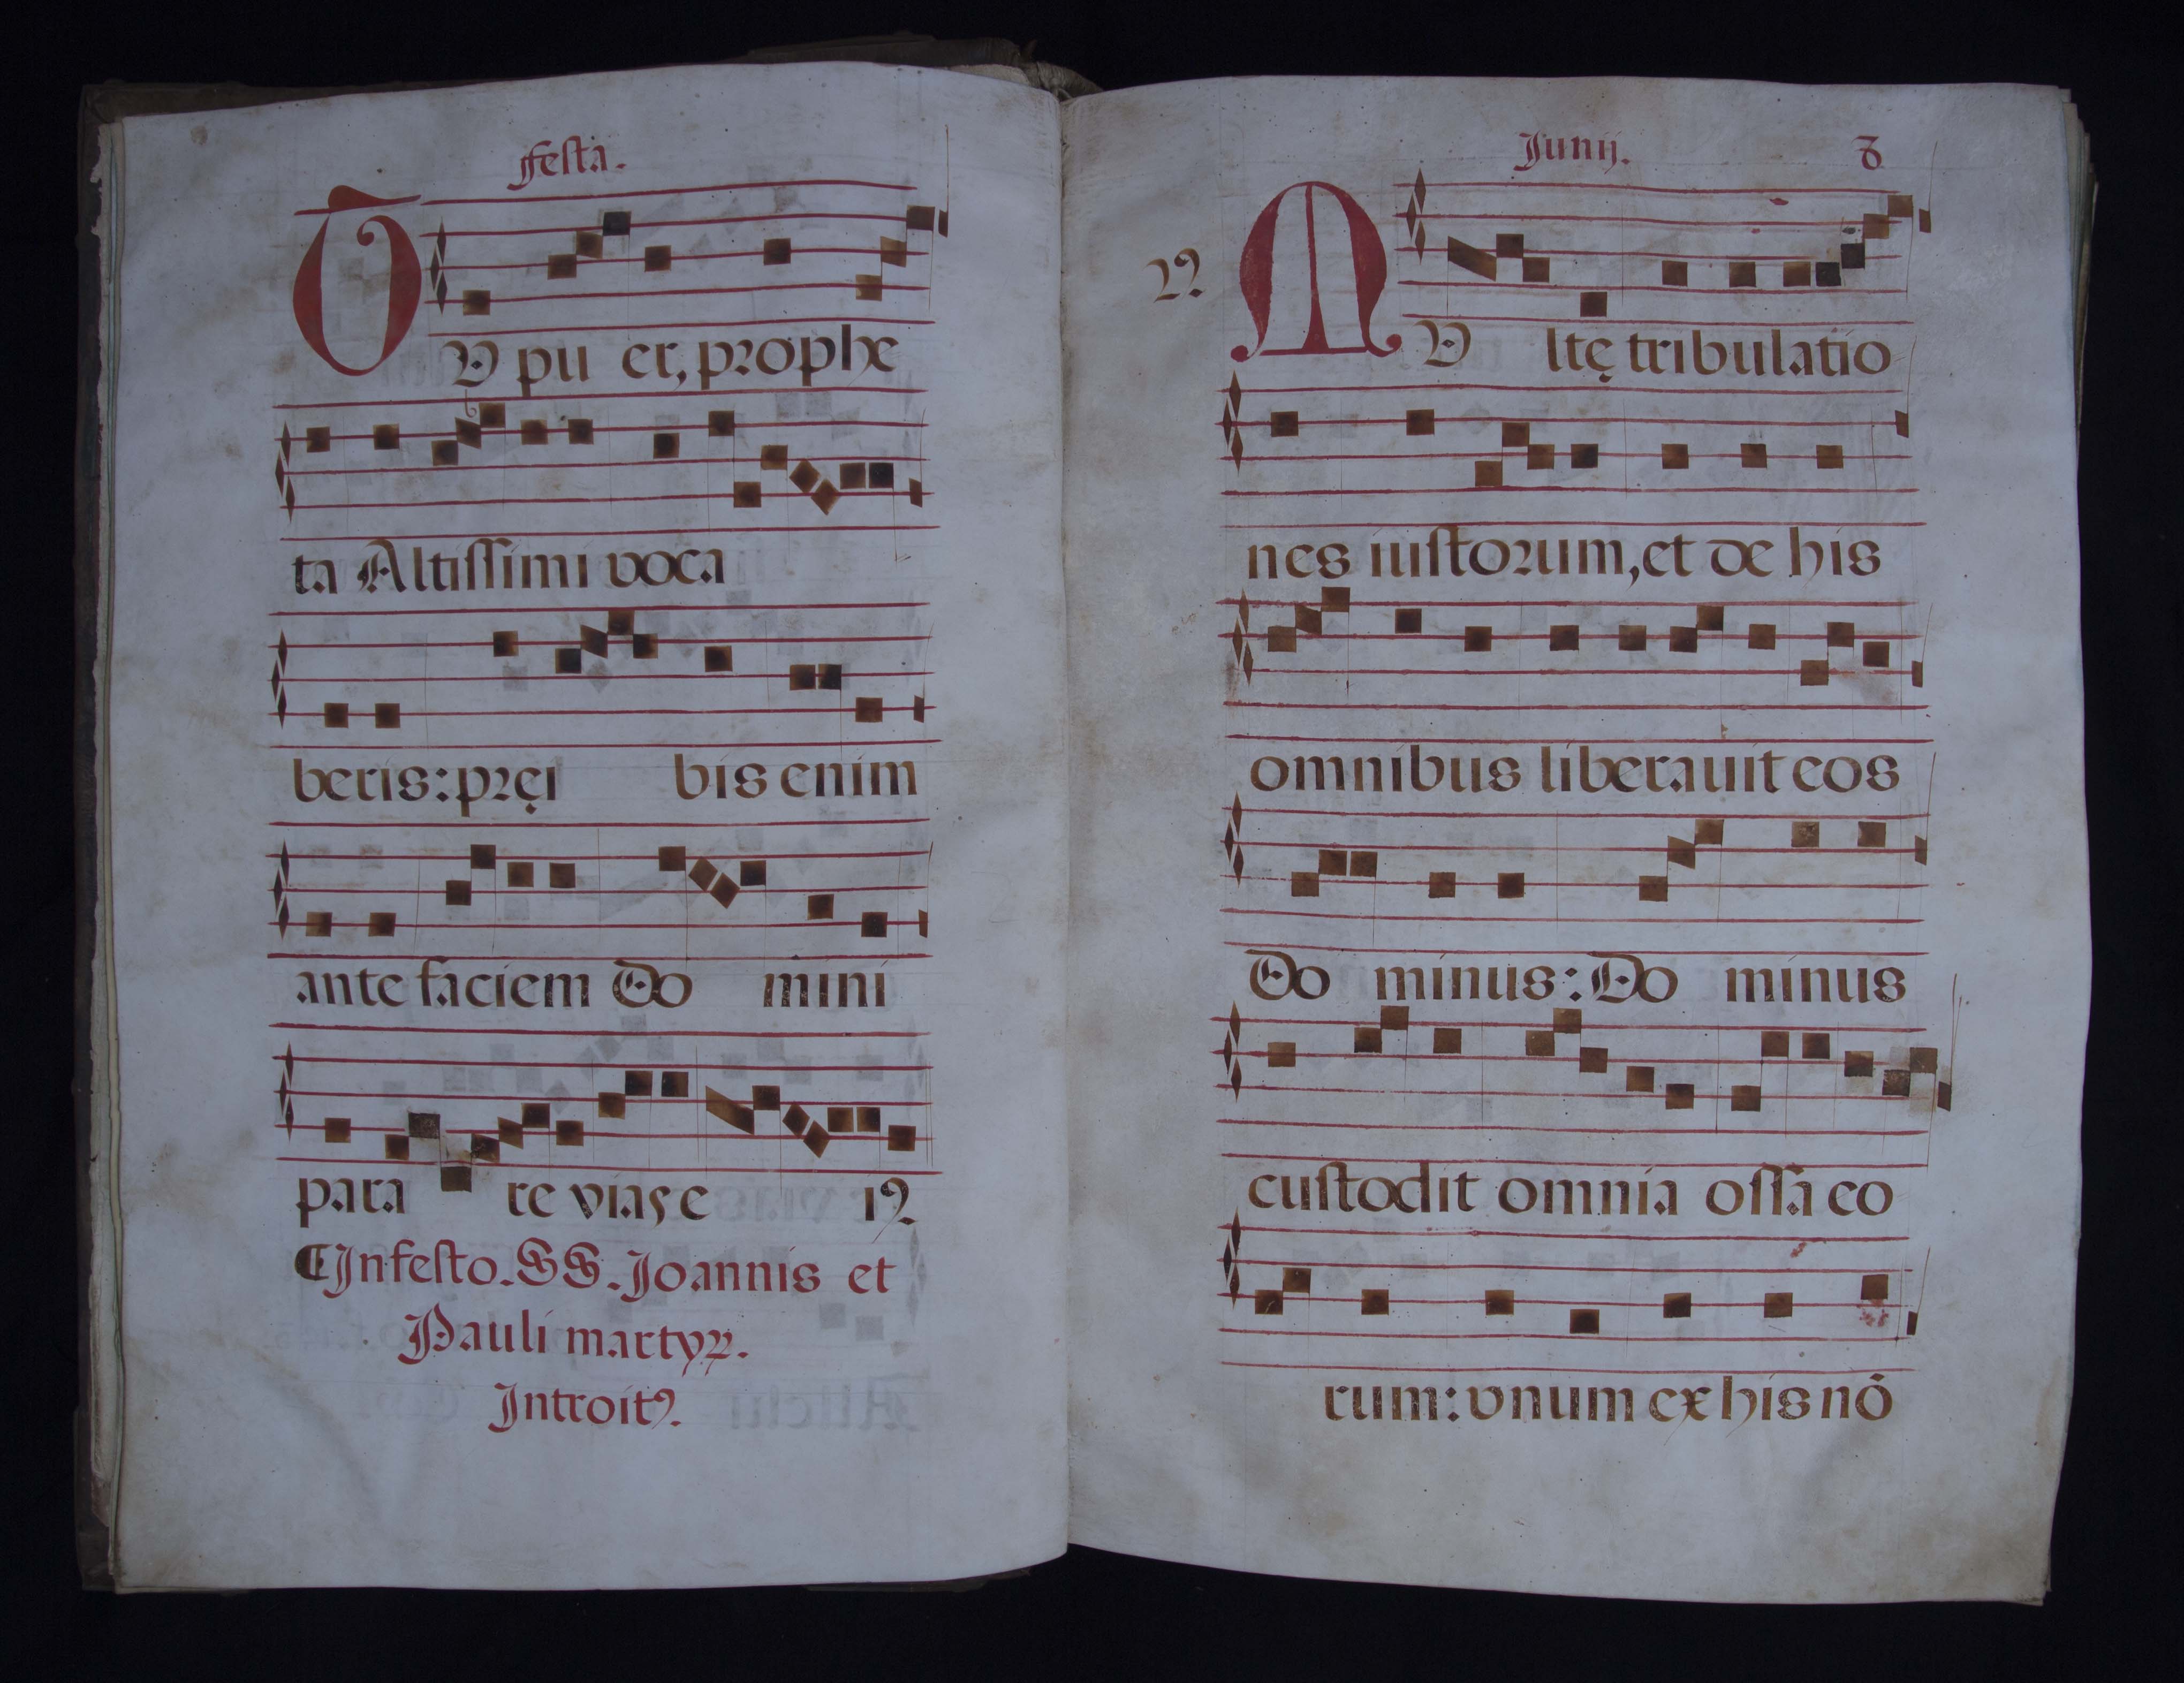 festa.
TV pu er, prophe
ta Altissimi voca
beris: pręi bis enim
ante faciem Do mini
para re vias e ꝰ
In festo. SS. Joannis et
Pauli martyꝝ.
Introitꝰ.
Junij. 8
MV ltę tribulatio
nes iustorum, et de his
omnibus liberauit eos
Do minus: Do minus
custodit omnia ossa eo
rum: vnum ex his nō